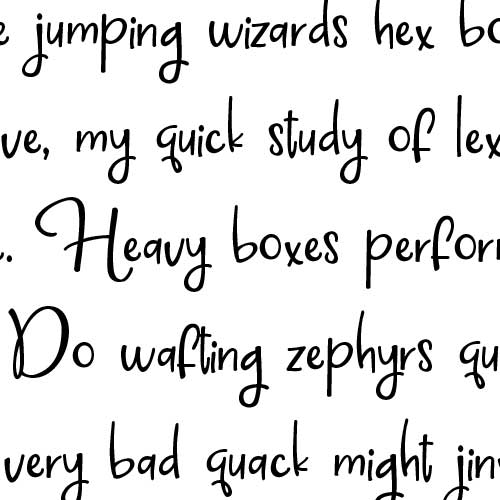 e jumping wizards hex bo
ve, my quick study of lex
. Heavy boxes perform
Do wafting zephyrs qu
very bad quack might jin